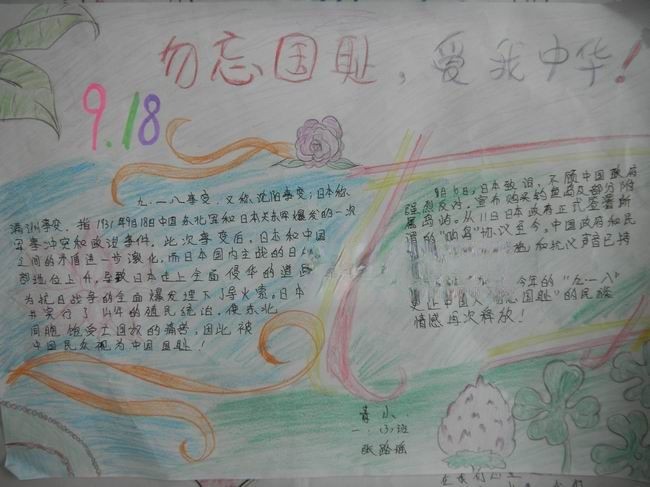 勿忘国耻，爱我中华！
9.18
九.一八事变，又称沈阳事变；日本称
满洲事变，指1931年9月18日中国东北军和日本关东军爆发的一次
军事冲突和政治事件。此次事变后，日本和中国
之间的矛盾进一步激化，而日本国内主战的日
部地位上升，导致日本走上全面侵华的道
为抗日战争的全面爆发埋下了导火索。日本
并实行了14年的殖民统治，使东北
同胞饱受亡国奴的痛苦；因此被
中国民众视为中国国耻！
日，日本政府，不顾中国政府
强烈反对，宣布购买钓鱼岛及部分附
属岛屿。从11日日本政府正式签署所
谓的“购岛”协议至今，中国政府和民
施和抗议声音已持
今年的“九.一八”
勿忘国耻”的民族
情感再次释放！
小
一.（3）班
张路瑶